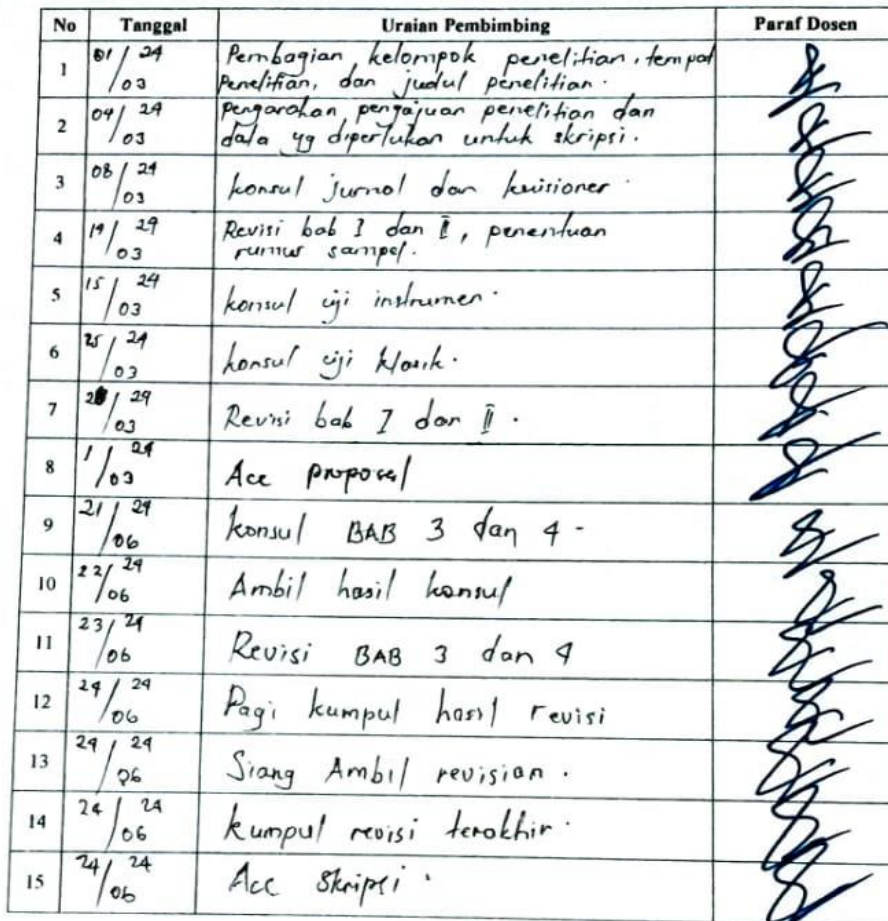 No Tanggal Uraian Pembimbing Paraf Dosen
1 01/03 24 Pembagian kelompok penelitian, tempat
penelitian, dan judul penelitian.
2 04/03 24 Pengarahan pengajuan penelitian dan
data yg diperlukan untuk skripsi.
3 08/03 24 konsul jurnal dan kuisioner.
4 /03 24 Revisi bab I dan II, penentuan
rumus sampel.
5 15/03 24 konsul uji instrumen.
6 25/03 24 konsul uji klasik.
7 /03 24 Revisi bab I dan II.
8 1/03 24 Acc proposal
9 21/06 24 konsul BAB 3 dan 4 -
10 22/06 24 Ambil hasil konsul
11 23/06 24 Revisi BAB 3 dan 4
12 24/06 24 Pagi kumpul hasil revisi
13 24/06 24 Siang Ambil revisian.
14 24/06 24 kumpul revisi terakhir.
15 24/06 24 Acc Skripsi.